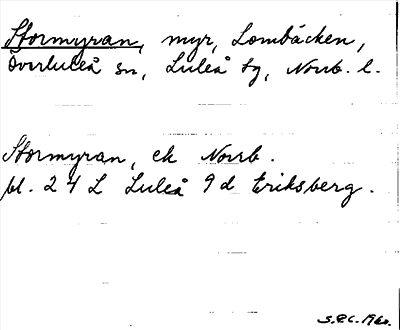 Stormyran, myr, Lombäcken,
Överluleå sn, Luleå tg, Norrb. l.
Stormyran, ek Norrb.
bl. 24 L Luleå 9 d Eriksberg.
S.E.C. 1960.